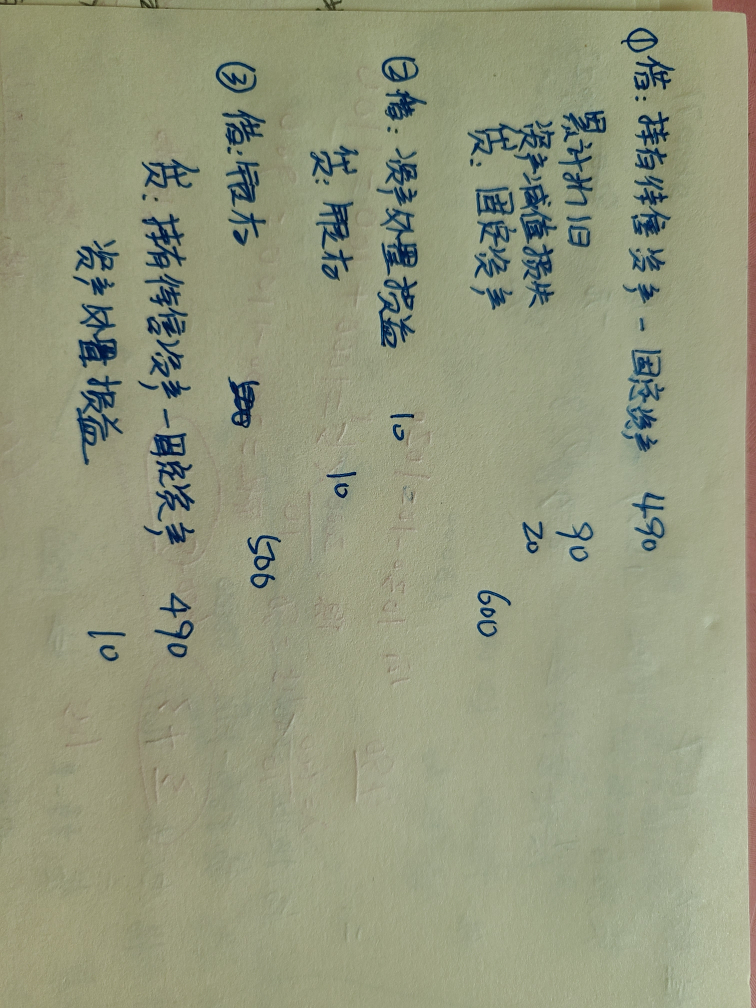 ① 借: 持有待售资产-固定资产 490
累计折旧 90
资产减值损失 20
贷: 固定资产 600
② 借: 资产处置损益 10
贷: 银行 10
③ 借: 银行 500
贷: 持有待售资产-固定资产 490
资产处置损益 10